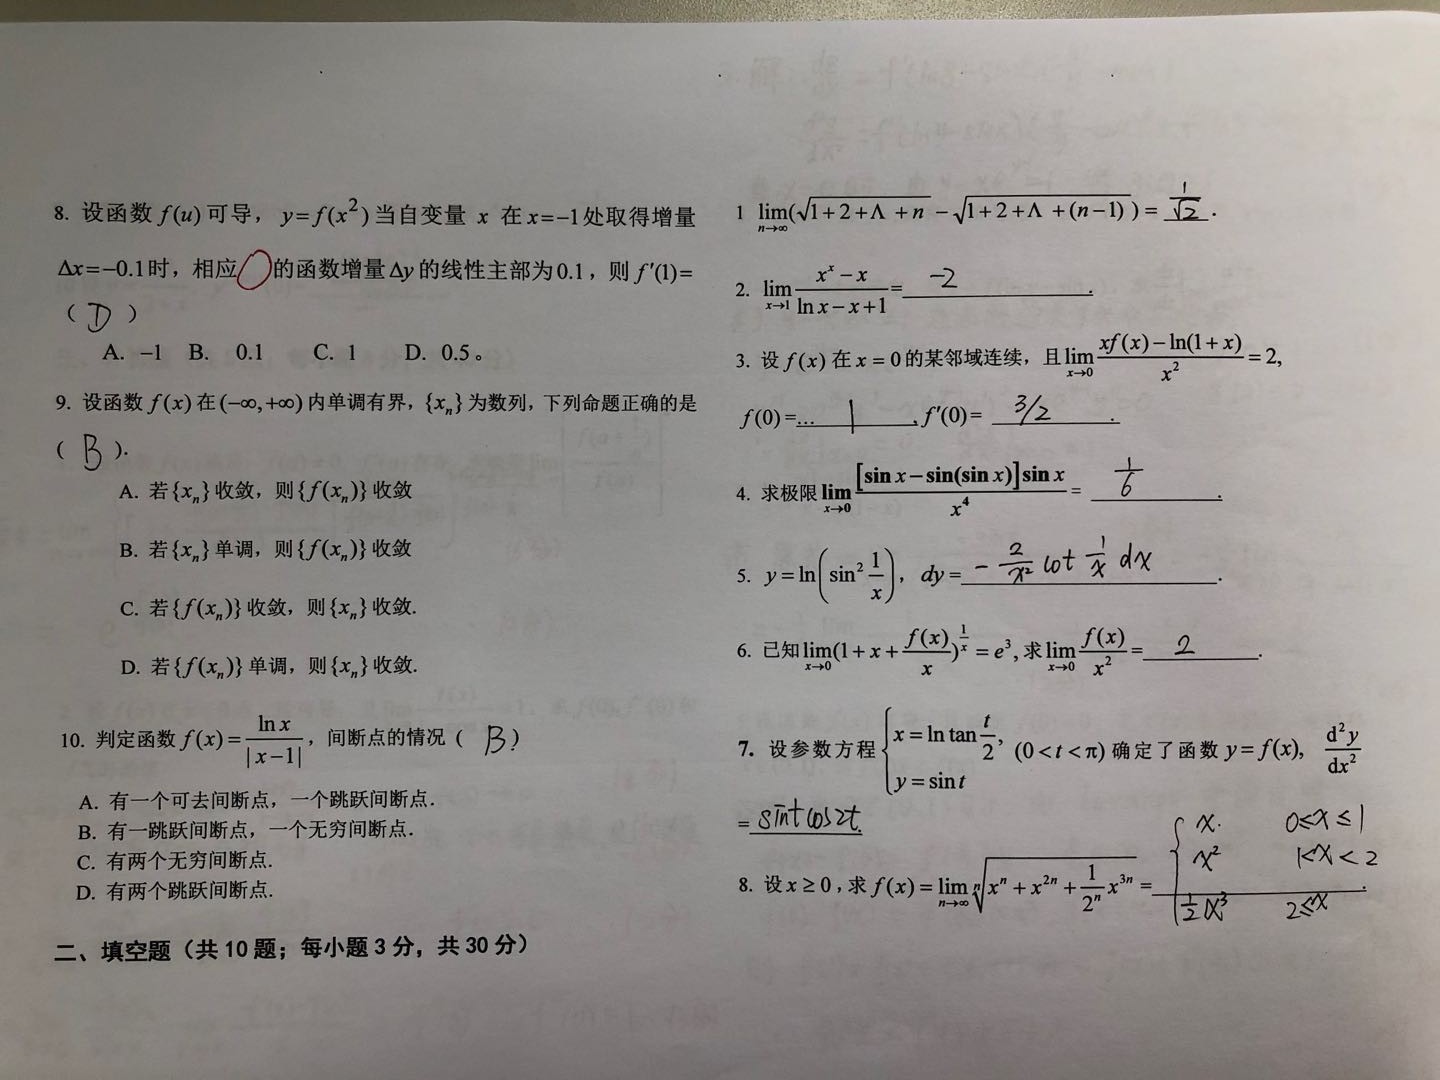 8. 设函数 f(u) 可导，y=f(x²) 当自变量 x 在 x=−1 处取得增量
Δx=−0.1 时，相应 的函数增量 Δy 的线性主部为 0.1，则 f′(1)=
（ D ）
A. −1 B. 0.1 C. 1 D. 0.5。
9. 设函数 f(x) 在 (−∞,+∞) 内单调有界，{xₙ} 为数列，下列命题正确的是
（ B ）.
A. 若{xₙ}收敛，则{f(xₙ)}收敛
B. 若{xₙ}单调，则{f(xₙ)}收敛
C. 若{f(xₙ)}收敛，则{xₙ}收敛.
D. 若{f(xₙ)}单调，则{xₙ}收敛.
10. 判定函数 f(x)=ln x/|x−1|，间断点的情况（ B ）
A. 有一个可去间断点，一个跳跃间断点.
B. 有一跳跃间断点，一个无穷间断点.
C. 有两个无穷间断点.
D. 有两个跳跃间断点.
二、填空题（共 10 题；每小题 3 分，共 30 分）
1 lim(n→∞)(√(1+2+Λ+n) −√(1+2+Λ+(n−1)))= 1/√2 .
2. lim(x→1) (xˣ−x)/(ln x−x+1)= −2 .
3. 设 f(x) 在 x=0 的某邻域连续，且 lim(x→0) (xf(x)−ln(1+x))/x² =2,
f(0)=... 1 , f′(0)= 3/2 .
4. 求极限 lim(x→0) [sin x−sin(sin x)]sin x/x⁴ = 1/6 .
5. y=ln(sin² 1/x)，dy= −2/x² cot 1/x dx .
6. 已知 lim(x→0)(1+x+f(x)/x)^(1/x) =e³, 求 lim(x→0) f(x)/x² = 2 .
7. 设参数方程 { x=ln tan t/2, y=sin t (0<t<π) 确定了函数 y=f(x), d²y/dx²
= sint cos2t.
8. 设 x≥0，求 f(x)=lim(n→∞) ⁿ√(xⁿ+x²ⁿ+1/2ⁿ x³ⁿ) = { x. 0≤x≤1
x² 1<x<2
1/2 x³ 2≤x .